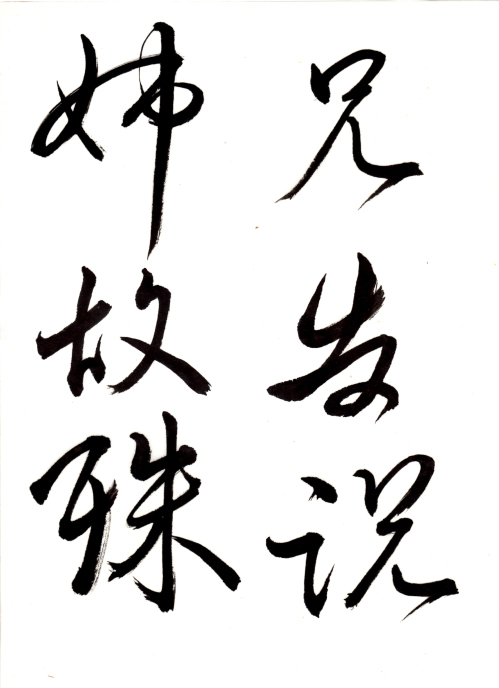 兄发说
姊故殊